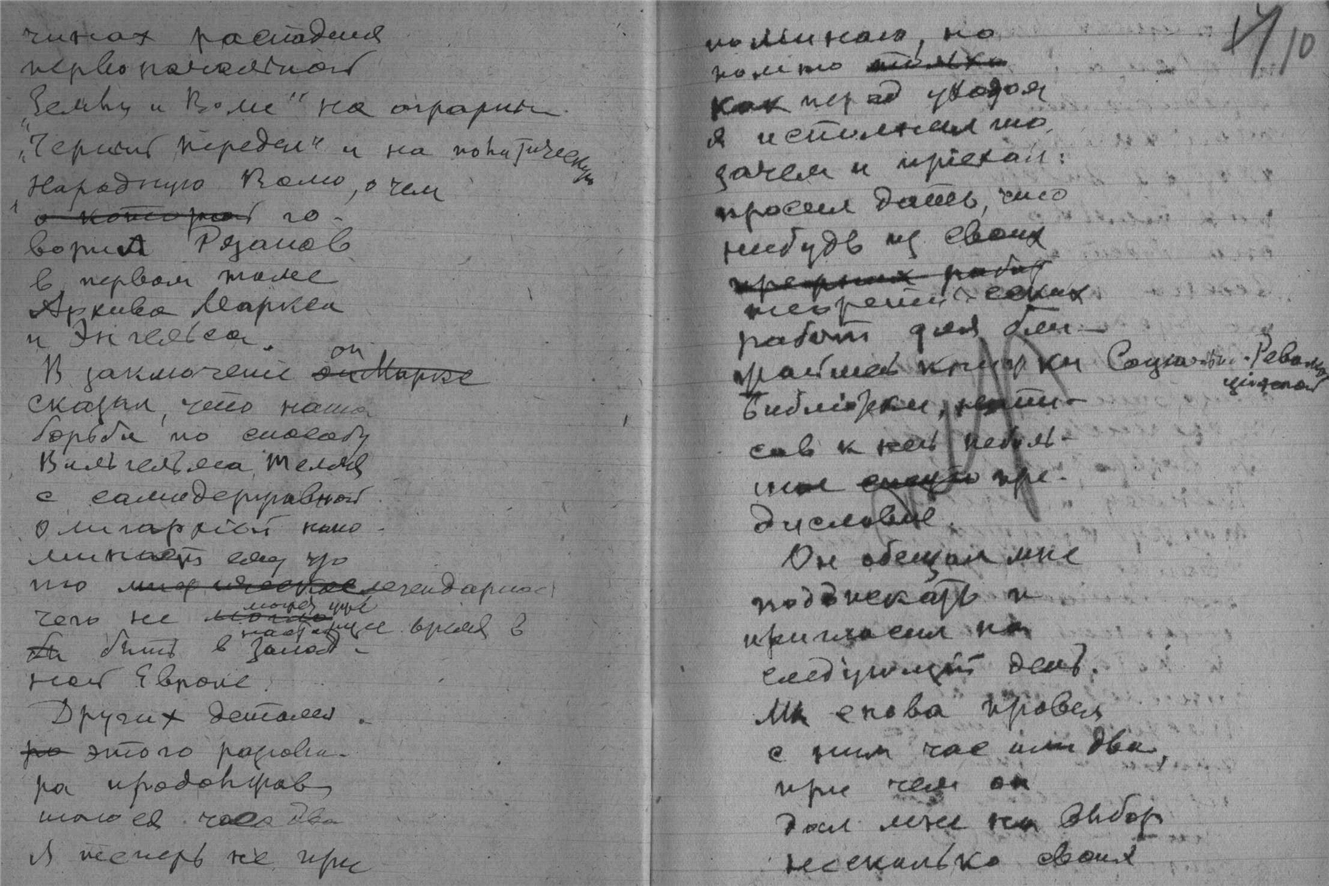 чинах распадения
первоначальной
"Земли и Воли" на аграрн.
"Черный передел" и на политическую
Народную Волю, о чем
о которой го-
ворил Рязанов
в первом томе
Архива Маркса
и Энгельса.
В заключение он
сказал, что наша
борьба по способу
Вильгельма Телля
с самодержавной
олигархией напо-
минает ему что
то мифическое легендарное
чего не может уже
бы быть в настоящее время в Запад-
ной Европе.
Других деталей
ра этого разгово-
ра продолжав
шагося часа два
я теперь не при
17/10
поминаю, но
помню только
как перед уходом
я исполнил то,
зачем и приехал:
просил дать, что
нибудь из своих
прежних работ
теоретических
работ для бли-
жайшей книжки Социально-Револю
ционной
библіотеки, напи-
сав к ней неболь-
шое пре-
дисловие.
Он обещал мне
подыскать и
пригласил на
следующий день.
Мы снова провел
с ним час или два,
при чем он
дал мне на выбор
несколько своих